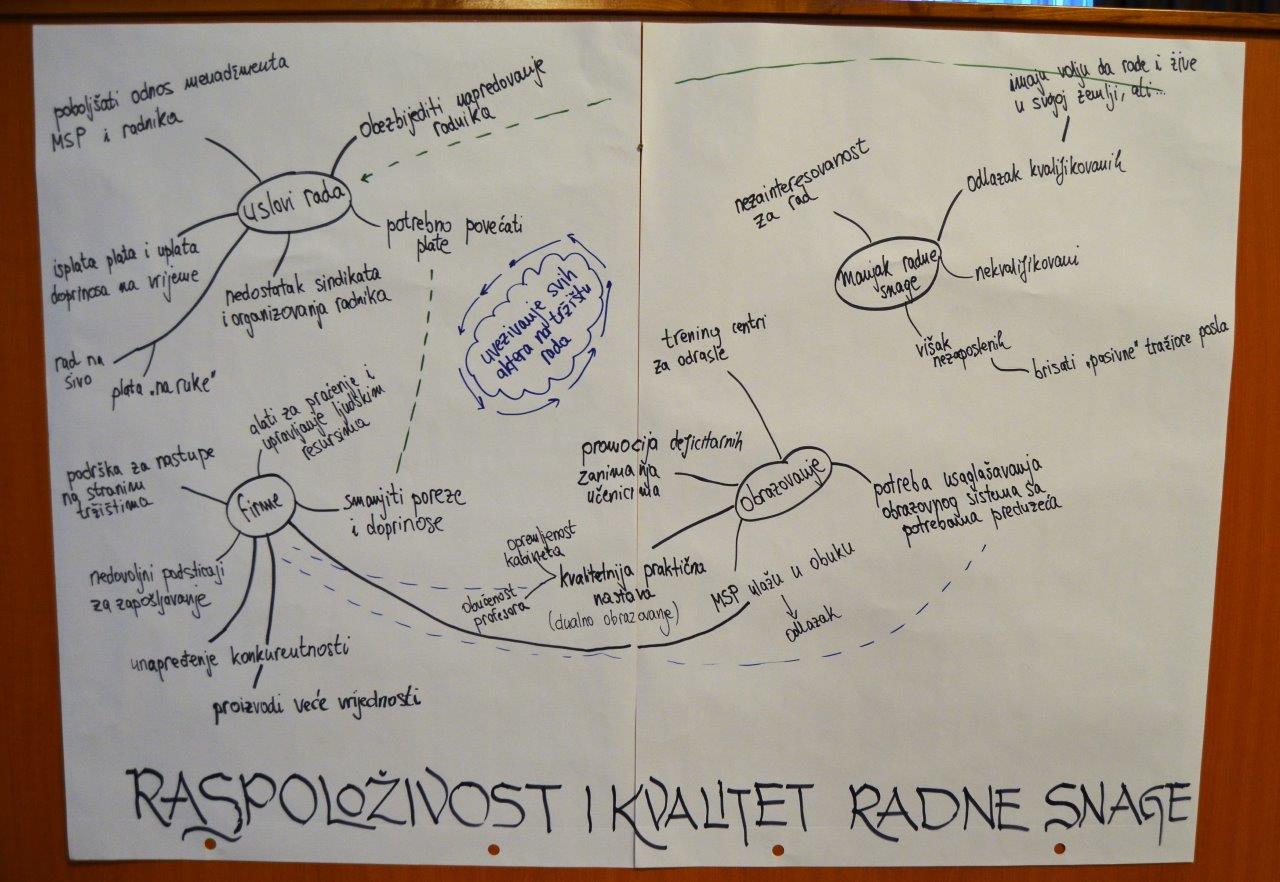 poboljšati odnos menadžmenta
MSP i radnika
obezbijediti napredovanje
radnika
uslovi rada
isplata plata i uplata
doprinosa na vrijeme
nedostatak sindikata
i organizovanja radnika
potrebno povećati
plate
rad na
sivo
plata „na ruke"
uvezivanje svih
aktera na tržištu
rada
imaju volju da rade i žive
u svojoj zemlji, ali...
nezainteresovanost
za rad
odlazak kvalifikovanih
Manjak radne
snage
nekvalifikovani
višak
nezaposlenih
brisati „pasivne" tražioce posla
alati za praćenje i
upravljanje ljudskim
resursima
podrška za nastupe
na stranim
tržištima
firme
smanjiti poreze
i doprinose
nedovoljni podsticaji
za zapošljavanje
unapređenje konkurentnosti
proizvodi veće vrijednosti
trening centri
za odrasle
promocija deficitarnih
zanimanja
učenicima
Obrazovanje
potreba usaglašavanja
obrazovnog sistema sa
potrebama preduzeća
opremljenost
kabineta
kvalitetnija praktična
nastava
(dualno obrazovanje)
obučenost
profesora
MSP ulažu u obuku
odlazak
RASPOLOŽIVOST I KVALITET RADNE SNAGE